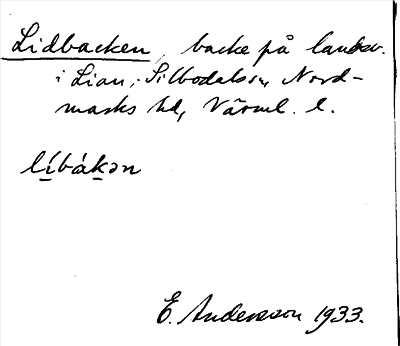 Lidbacken, backe på landsv.
i Lian, Silbodals sn, Nord-
marks hd, Värml. l.
líbákən
E. Andersson 1933.